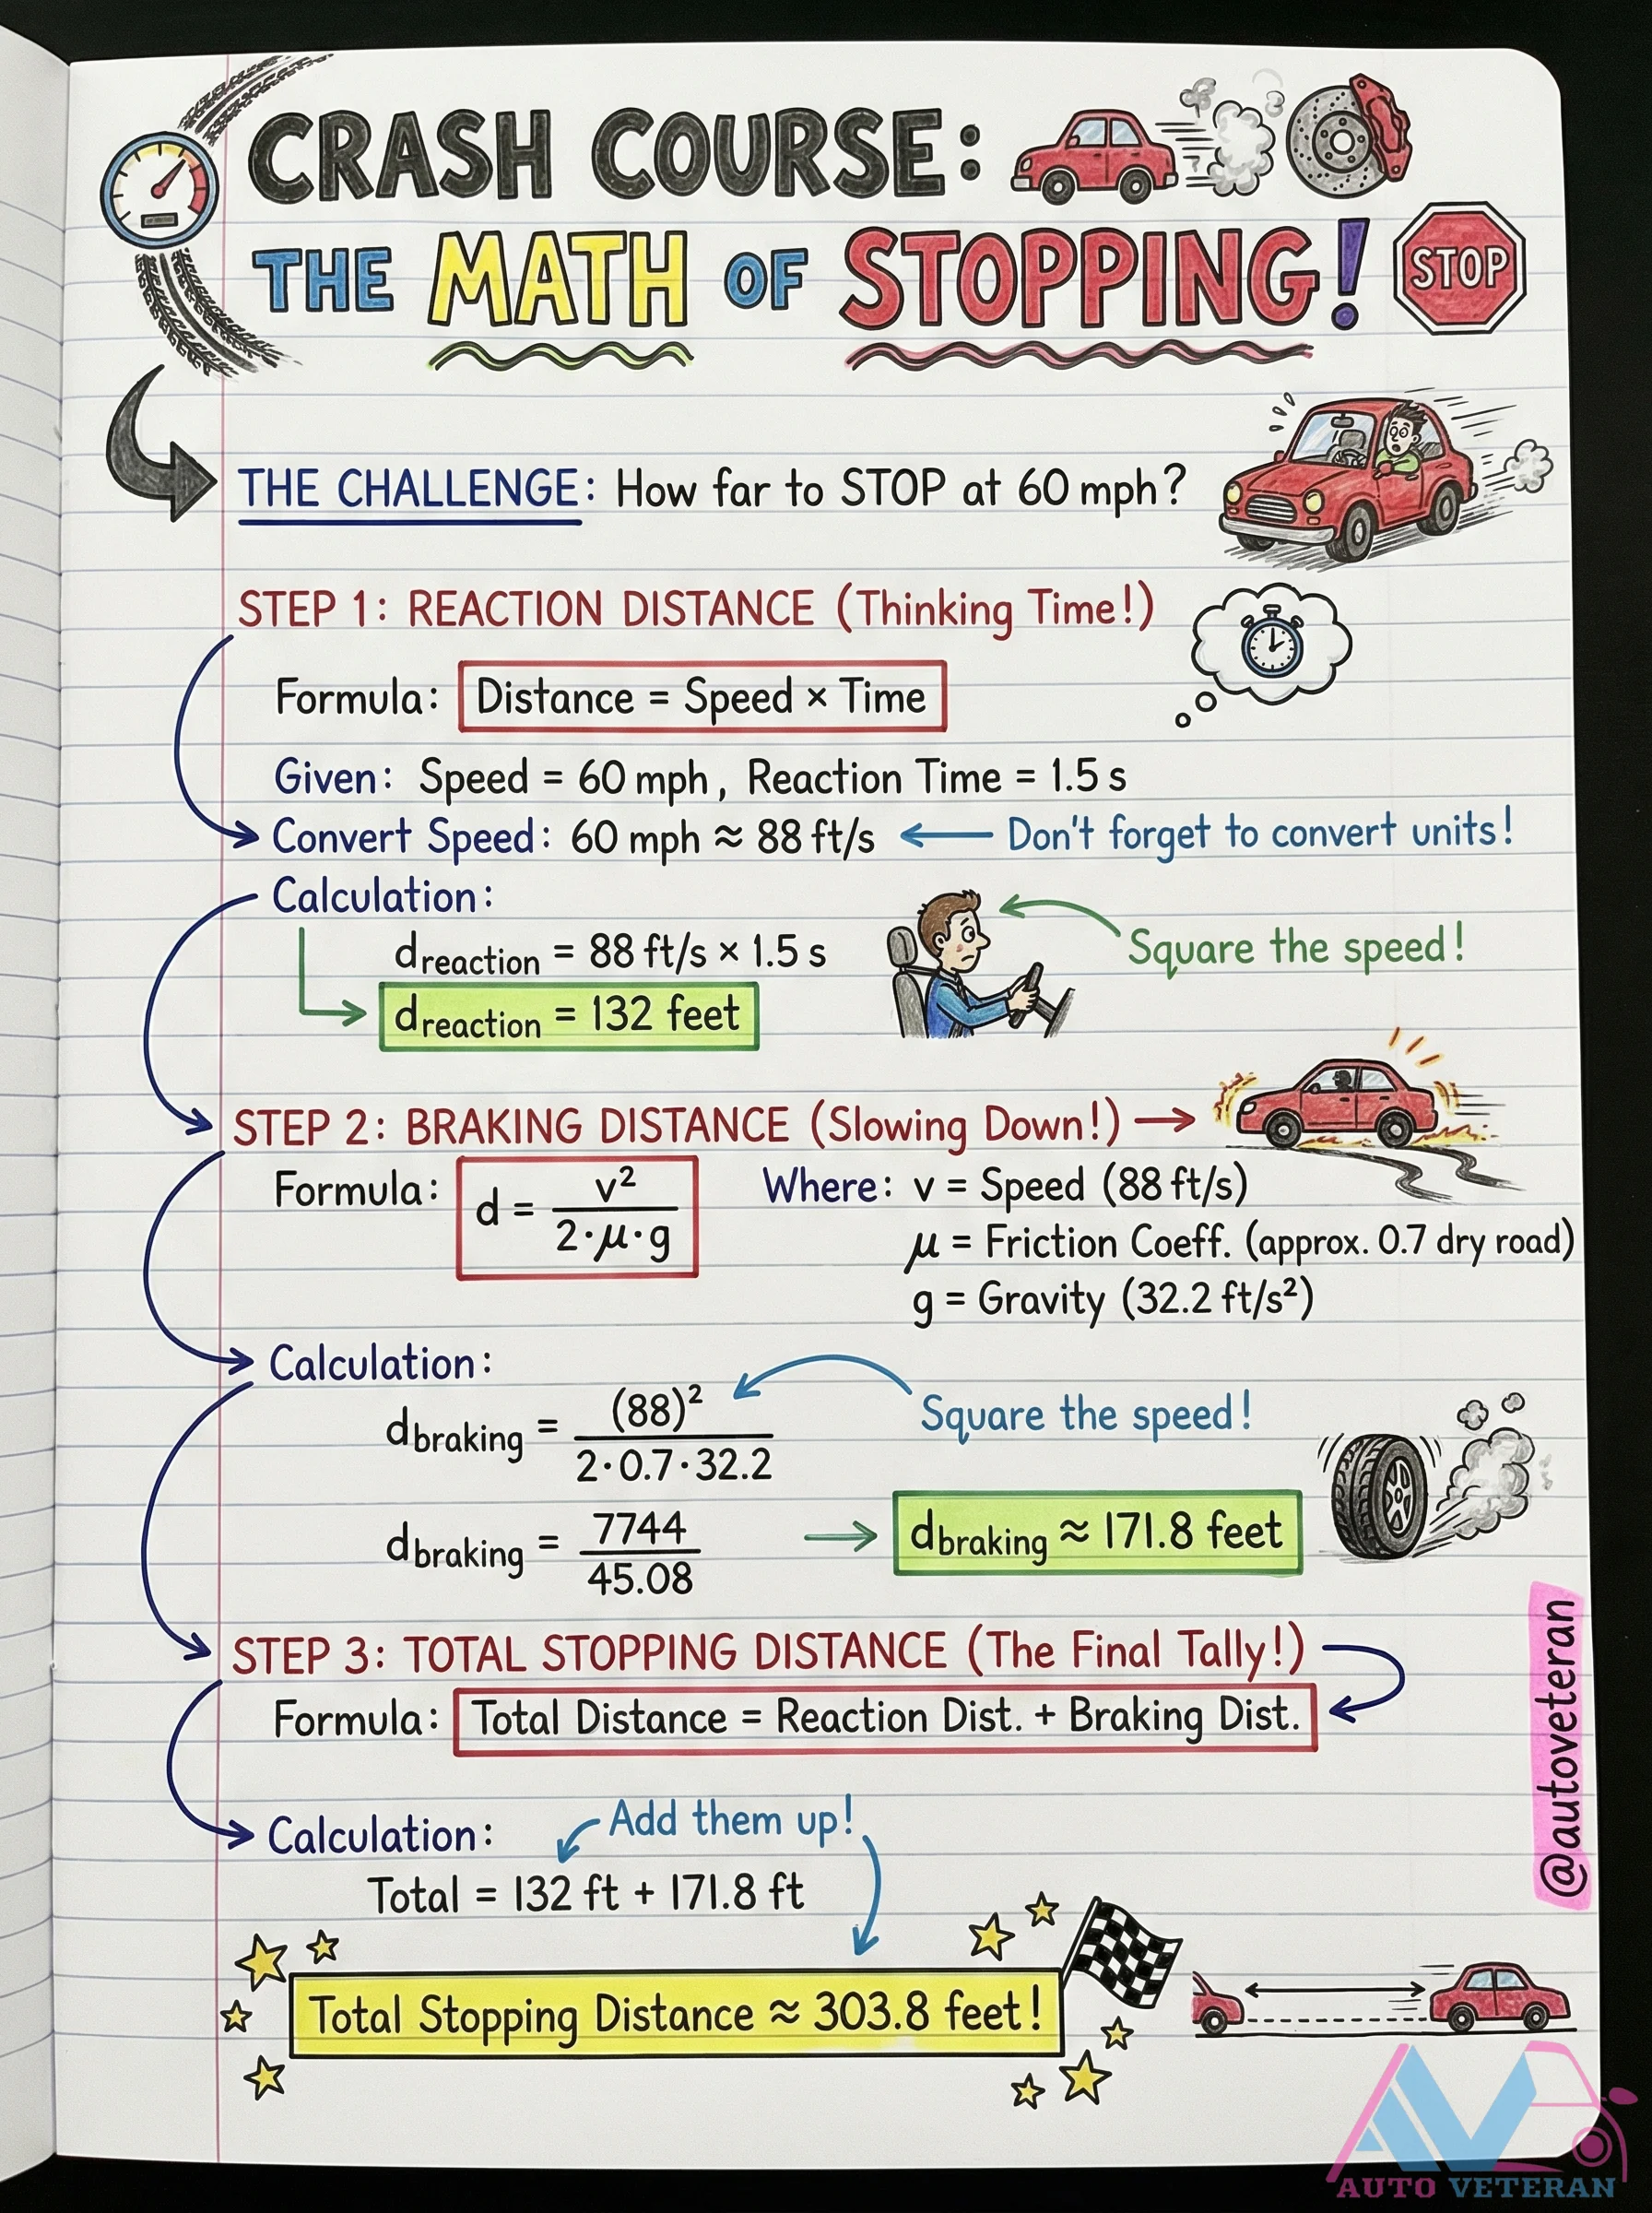 CRASH COURSE:
THE MATH OF STOPPING!
STOP
THE CHALLENGE: How far to STOP at 60 mph?
STEP 1: REACTION DISTANCE (Thinking Time!)
Formula: Distance = Speed × Time
Given: Speed = 60 mph, Reaction Time = 1.5 s
Convert Speed: 60 mph ≈ 88 ft/s ← Don't forget to convert units!
Calculation:
d_reaction = 88 ft/s × 1.5 s
Square the speed!
d_reaction = 132 feet
STEP 2: BRAKING DISTANCE (Slowing Down!) →
Formula: d = v² / 2·μ·g
Where: v = Speed (88 ft/s)
μ = Friction Coeff. (approx. 0.7 dry road)
g = Gravity (32.2 ft/s²)
Calculation:
d_braking = (88)² / 2·0.7·32.2
Square the speed!
d_braking = 7744 / 45.08 → d_braking ≈ 171.8 feet
STEP 3: TOTAL STOPPING DISTANCE (The Final Tally!)
Formula: Total Distance = Reaction Dist. + Braking Dist.
Calculation:
Add them up!
Total = 132 ft + 171.8 ft
Total Stopping Distance ≈ 303.8 feet!
@autoveteran
AUTO VETERAN